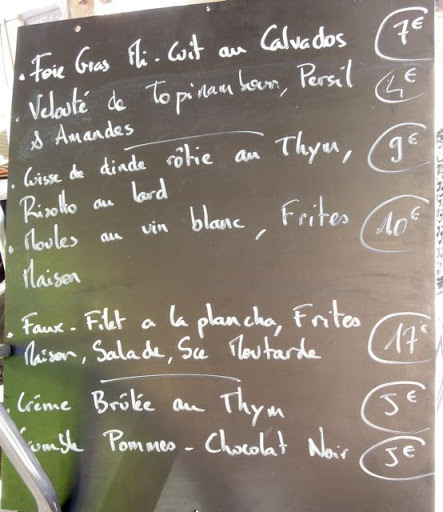 . Foie Gras Mi-Cuit au Calvados 7€
. Velouté de Topinambour, Persil 4€
& Amandes
. Cuisse de dinde rôtie au Thym, 9€
Risotto au lard
. Moules au vin blanc, Frites 10€
Maison
. Faux-Filet a la plancha, Frites
Maison, Salade, Sce Moutarde 17€
. Crème Brûlée au Thym 5€
. Crumble Pommes - Chocolat Noir 5€